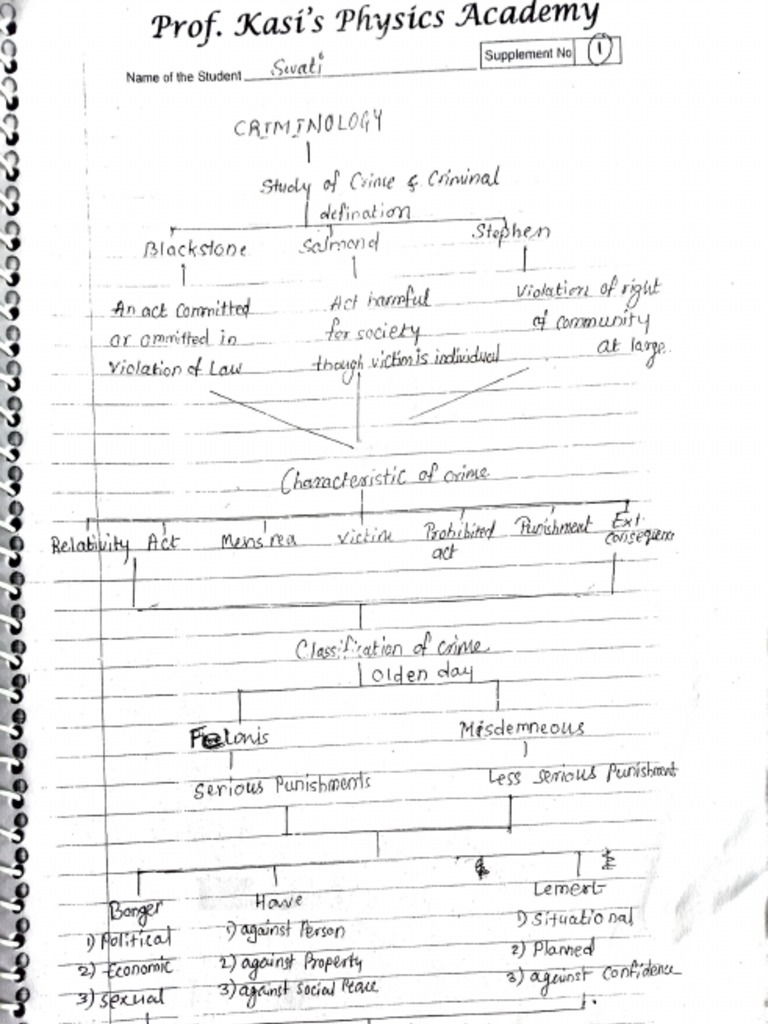 Prof. Kasi's Physics Academy
Supplement No 1
Name of the Student Swati
CRIMINOLOGY
Study of Crime & Criminal
defination
Blackstone Salmond Stephen
An act committed Act harmful Violation of right
or ommitted in for society of community
Violation of Law though victim is individual at large
Characteristic of crime
Relability Act Mens rea Victim Prohibited Punishment Ext.
act consequen
Classification of crime
olden day
Felonis Misdemneous
Serious Punishments Less serious Punishment
Bonger Howe Lemert
1) Political 1) against Person 1) Situational
2) Economic 2) against Property 2) Planned
3) sexual 3) against social Peace 3) against Confidence